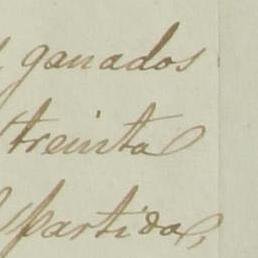 ganados
treinta
partida,